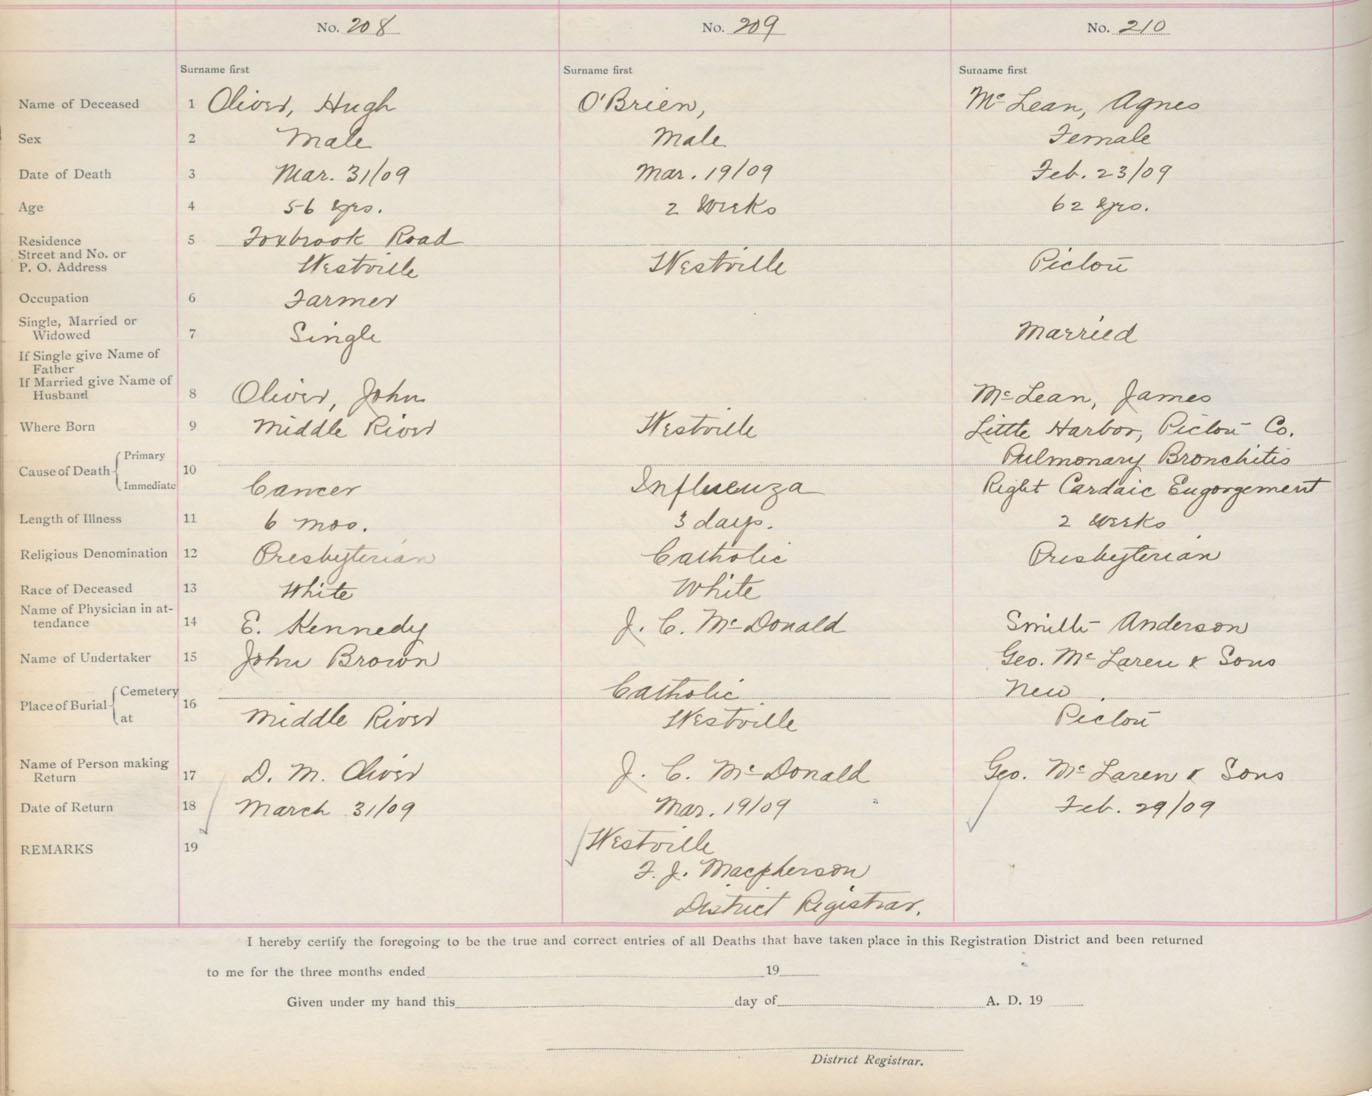 No. 208 No. 209 No. 210
Surname first Surname first Surname first
Name of Deceased 1 Oliver, Hugh O'Brien, McLean, Agnes
Sex 2 Male Male Female
Date of Death 3 Mar. 31/09 Mar. 19/09 Feb. 23/09
Age 4 56 yrs. 2 Weeks 62 yrs.
Residence 5 Foxbrook Road
Street and No. or
P. O. Address Westville Westville Pictou
Occupation 6 Farmer
Single, Married or
Widowed 7 Single Married
If Single give Name of
Father
If Married give Name of
Husband 8 Oliver, John McLean, James
Where Born 9 Middle River Westville Little Harbor, Pictou Co.
Primary Pulmonary Bronchitis
Cause of Death 10
Immediate Cancer Influenza Right Cardaic Engorgement
Length of Illness 11 6 mos. 3 days. 2 weeks
Religious Denomination 12 Presbyterian Catholic Presbyterian
Race of Deceased 13 White White
Name of Physician in at-
tendance 14 E. Kennedy J. C. McDonald Smith Anderson
Name of Undertaker 15 John Brown Geo. McLaren & Sons
Cemetery Catholic New
Place of Burial 16
at Middle River Westville Pictou
Name of Person making
Return 17 D. M. Oliver J. C. McDonald Geo. McLaren & Sons
Date of Return 18 March 31/09 Mar. 19/09 Feb. 29/09
REMARKS 19 Westville
F. J. Macpherson
District Registrar.
I hereby certify the foregoing to be the true and correct entries of all Deaths that have taken place in this Registration District and been returned
to me for the three months ended 19
Given under my hand this day of A. D. 19
District Registrar.